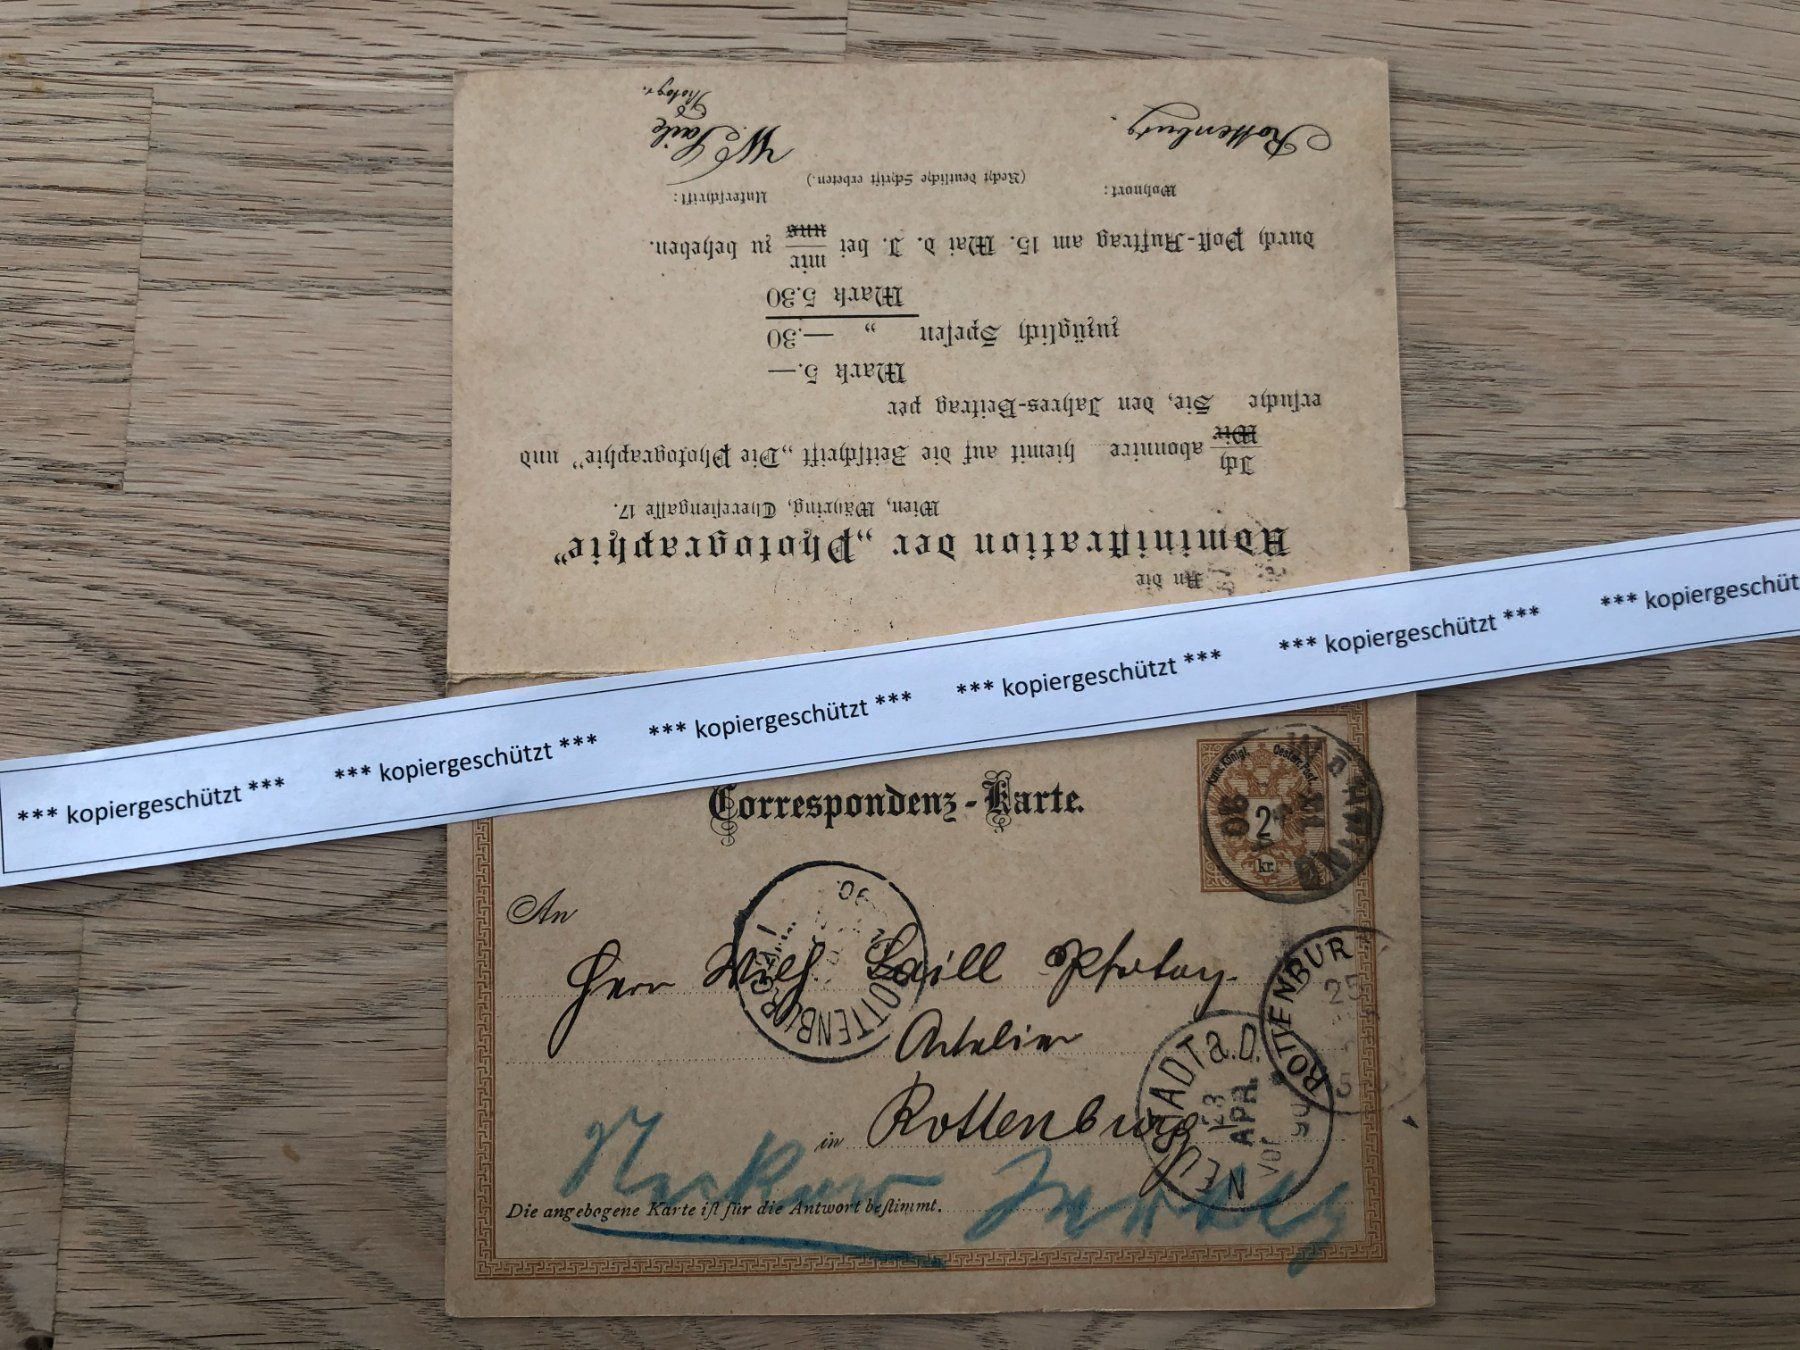 W. Saile
Photogr.
Rottenburg.
Wohnort:
(Recht deutliche Schrift erbeten.)
Unterschrift:
durch Post-Auftrag am 15. Mai d. J. bei mir uns zu beheben.
Mark 5.30
zuzüglich Spesen „ —.30
Mark 5.—
ersuche Sie, den Jahres-Beitrag per
Ich Wir abonnire hiemit auf die Zeitschrift „Die Photographie“ und
Wien, Währing, Theresiengasse 17.
Administration der „Photographie“
An die
*** kopiergeschützt *** *** kopiergeschützt *** *** kopiergeschützt *** *** kopiergeschützt *** *** kopiergeschützt *** *** kopiergeschüt
Correspondenz-Karte.
Kais. Königl. Oesterr. Post
2
kr.
WÄHRING
90
An
Herr Wilh Saill Photog.
Atelier
in Rottenburg
Die angebogene Karte ist für die Antwort bestimmt.
ROTTENBURG
90
NEUSTADT a.D.
23
APR.
VOR
90
ROTTENBURG
25
Neckar